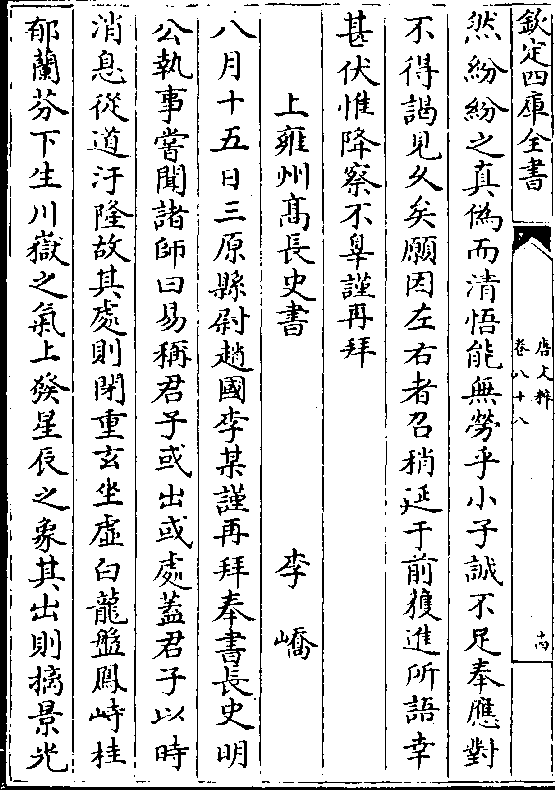 欽定四庫全書
唐文粹
卷八十八
然紛紛之真偽而清悟能無勞乎小子誠不足奉應對
不得謁見久矣願因左右者召稍延于前獲進所語幸
甚伏惟降察不辠謹再拜
上雍州髙長史書 李嶠
八月十五日三原縣尉趙國李某謹再拜奉書長史明
公執事嘗聞諸師曰易稱君子或出或處蓋君子以時
消息從道汙隆故其處則閉重玄坐虛白龍盤鳳峙桂
郁蘭芬下生川嶽之氣上發星辰之象其出則摛景光